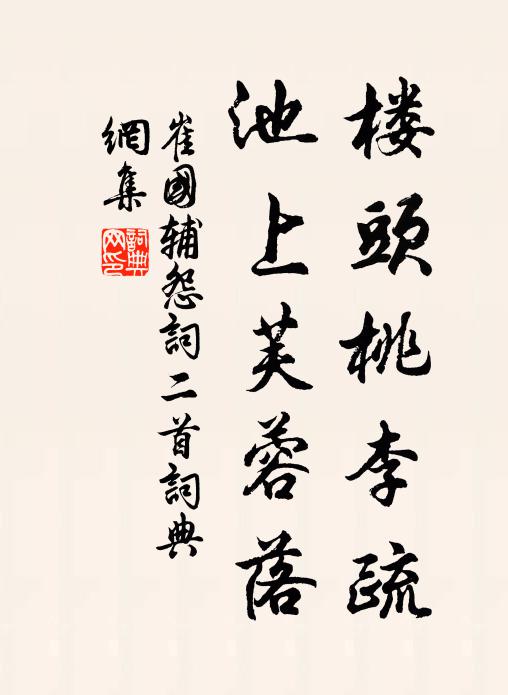 楼頭桃李疏
池上芙蓉落
崔國辅怨詞二首詞典
網集
詞典
网印